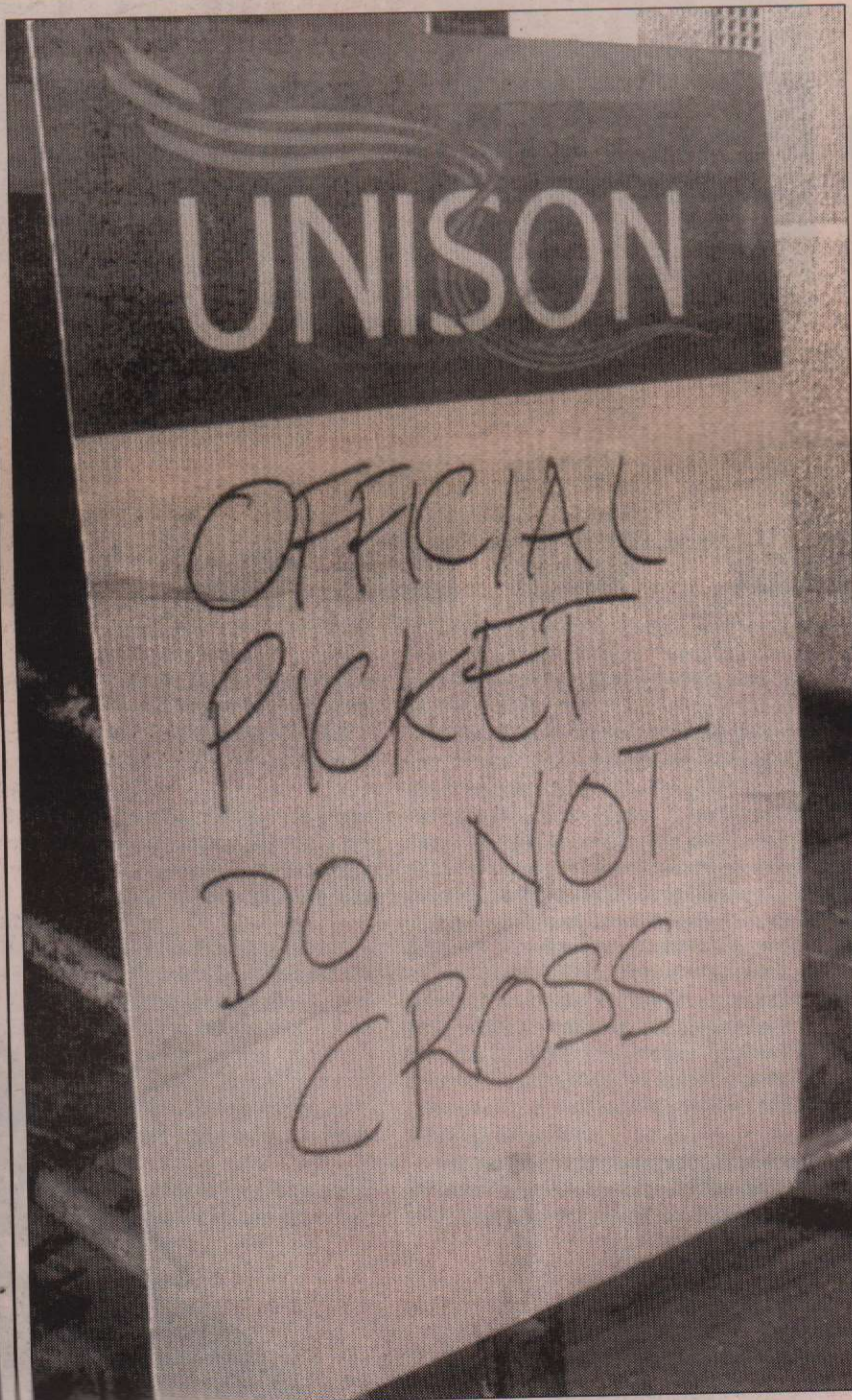 UNISON
OFFICIAL
PICKET
DO NOT
CROSS